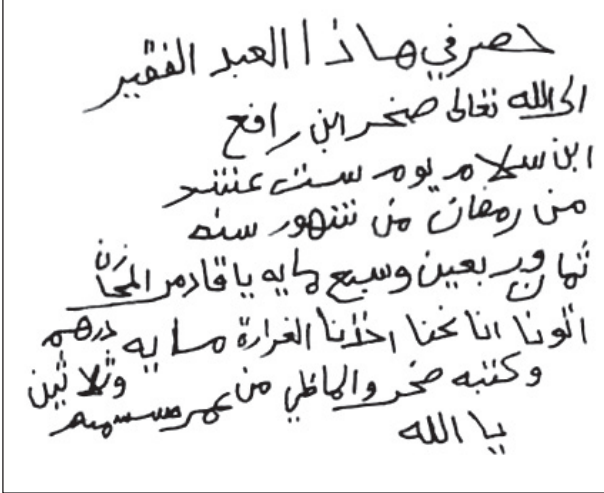 حصر في هاذا العبد الفقير
الى الله تعالى صخر ابن رافع
ابن سلام يوم ست عشر
من رمضان من شهور سنه
ثمان وربعين وسبع مايه يا قادم
اتونا انا نحنا اخذنا الغرارة مايه درهم
وثلاثين
وكتبه صخر من عمر
يا الله